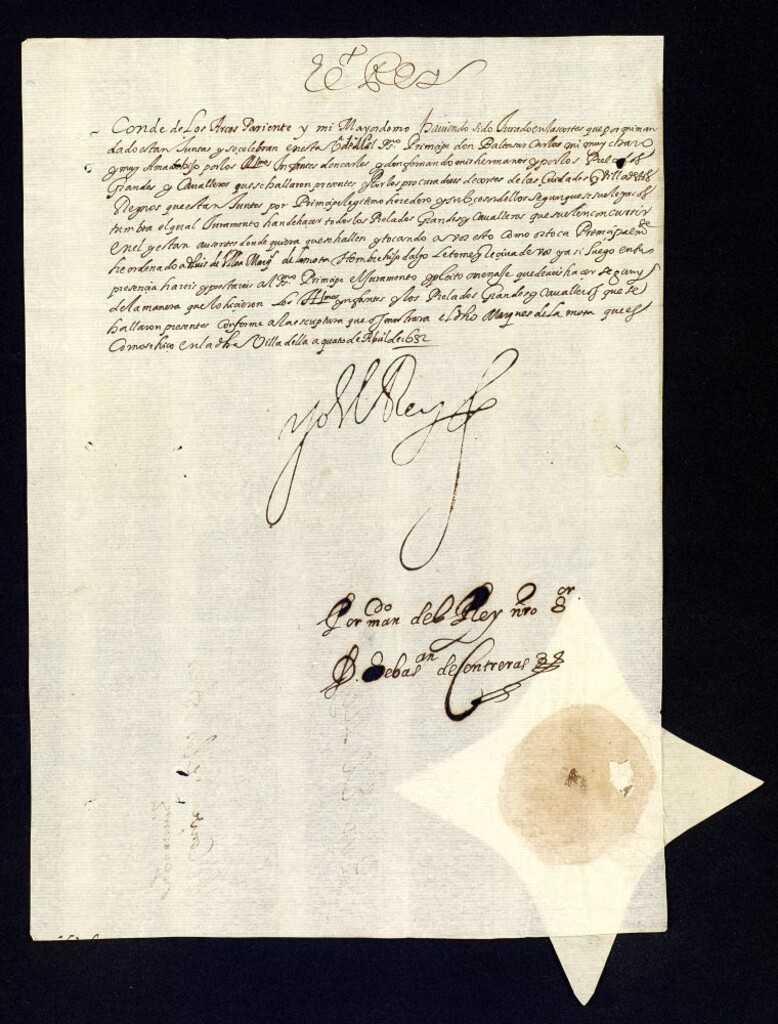 El Rey
Conde de Los Arcas Pariente y mi Mayordomo haviendo sido Jurado en las cortes que por mi man
dado estan Juntas y se celebran en esta Vª de M.d el Sr.mo Principe don Balthasar Carlos mi muy charo
y muy Amado hijo por los Ill.mos Infantes don carlos y don fernando mis hermanos y por los Prelados
Grandes y Cavalleros que se hallaron presentes y Por los procuradores de cortes de las Ciudades y Villas destos
Reynos que estan Juntos por Principe legitimo heredero y subcesor dellos segun que se suele y acos
tumbra el qual Juramento han de hacer todos los Prelados Grandes y Cavalleros que suelen concurrir
en el y estan ausentes donde quiera que se hallen y tocando a vos esto como os toca Principalm.te
he ordenado a Luis de Marq.s de la mota Hombre hijo dalgo Le tome y reciva de vos y assi Luego en su
presencia hareis y prestareis al Sr.mo Principe el Juramento y pleito omenaje que deveis hacer segun y
de la manera que lo hicieron Los Ill.mos ynfantes y los Prelados Grandes y Cavalleros que se
hallaron presentes conforme a la escriptura que os mostrara el dho Marques de la mota que es
Como se hico en la dha Villa della a quatro de Abril de 1632
yo el Rey
Por man.do del Rey nro S.or
D. Sebas.an de Contreras